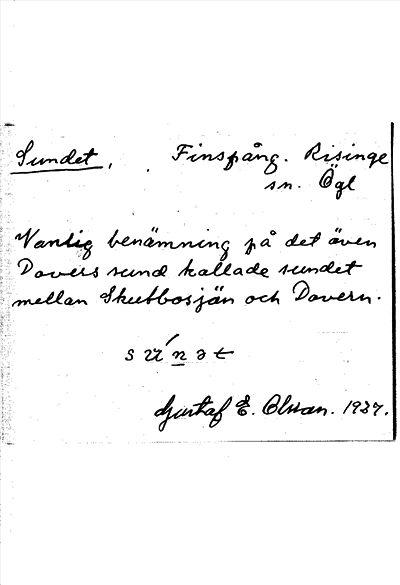 Sundet, . Finspång. Risinge
sn. Ögl
Vanlig benämning på det även
Dovers sund kallade sundet
mellan Skutbosjön och Dovern.
s u̇́ n̲ ə t
Gustaf E. Olsson. 1937.